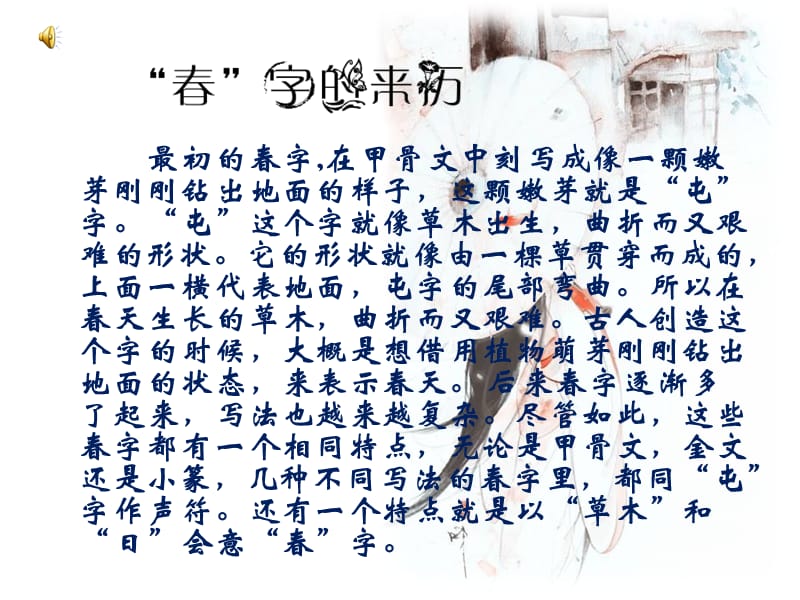 “春”字的来历
最初的春字,在甲骨文中刻写成像一颗嫩
芽刚刚钻出地面的样子，这颗嫩芽就是“屯”
字。“屯”这个字就像草木出生，曲折而又艰
难的形状。它的形状就像由一棵草贯穿而成的，
上面一横代表地面，屯字的尾部弯曲。所以在
春天生长的草木，曲折而又艰难。古人创造这
个字的时候，大概是想借用植物萌芽刚刚钻出
地面的状态，来表示春天。后来春字逐渐多
了起来，写法也越来越复杂。尽管如此，这些
春字都有一个相同特点，无论是甲骨文，金文
还是小篆，几种不同写法的春字里，都同“屯”
字作声符。还有一个特点就是以“草木”和
“日”会意“春”字。